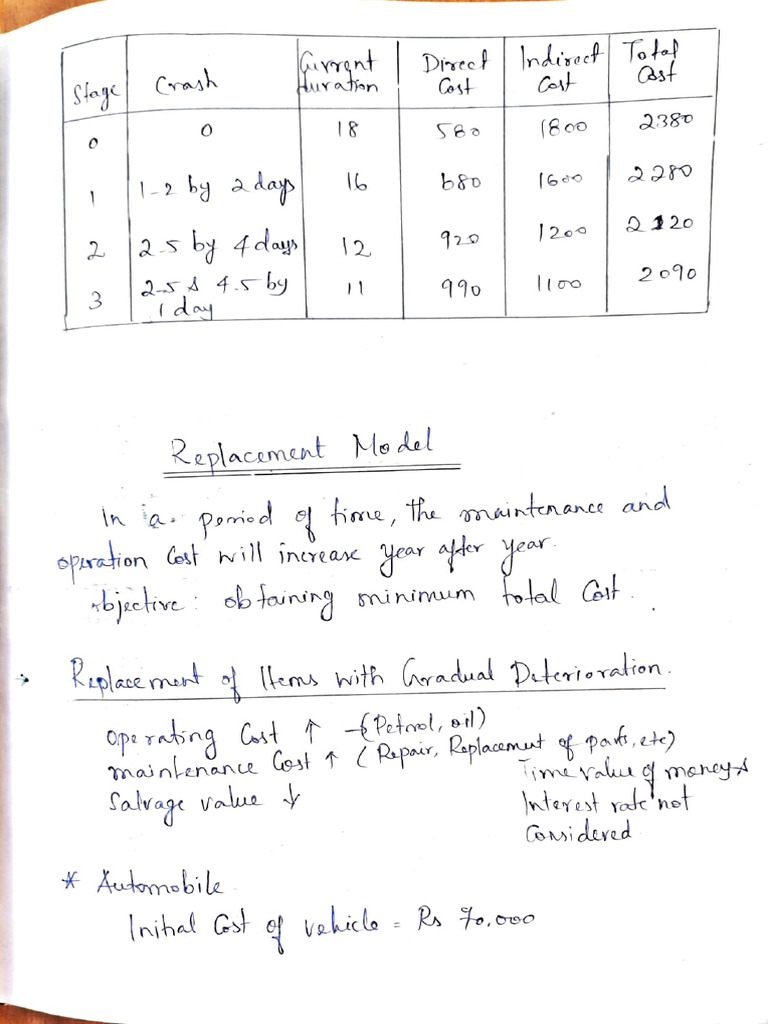 Stage Crash Current duration Direct Cost Indirect Cost Total Cost
0 0 18 580 1800 2380
1 1-2 by 2 days 16 680 1600 2280
2 2-5 by 4 days 12 920 1200 2120
3 2-5 & 4-5 by 1 day 11 990 1100 2090
Replacement Model
In a period of time, the maintenance and
operation Cost will increase year after year.
objective: obtaining minimum total Cost.
Replacement of Items with Gradual Deterioration.
Operating Cost ↑ - (Petrol, oil)
maintenance Cost ↑ (Repair, Replacement of parts, etc)
Salvage value ↓
Time value of money &
Interest rate not
Considered
* Automobile
Initial Cost of vehicle = Rs 70,000